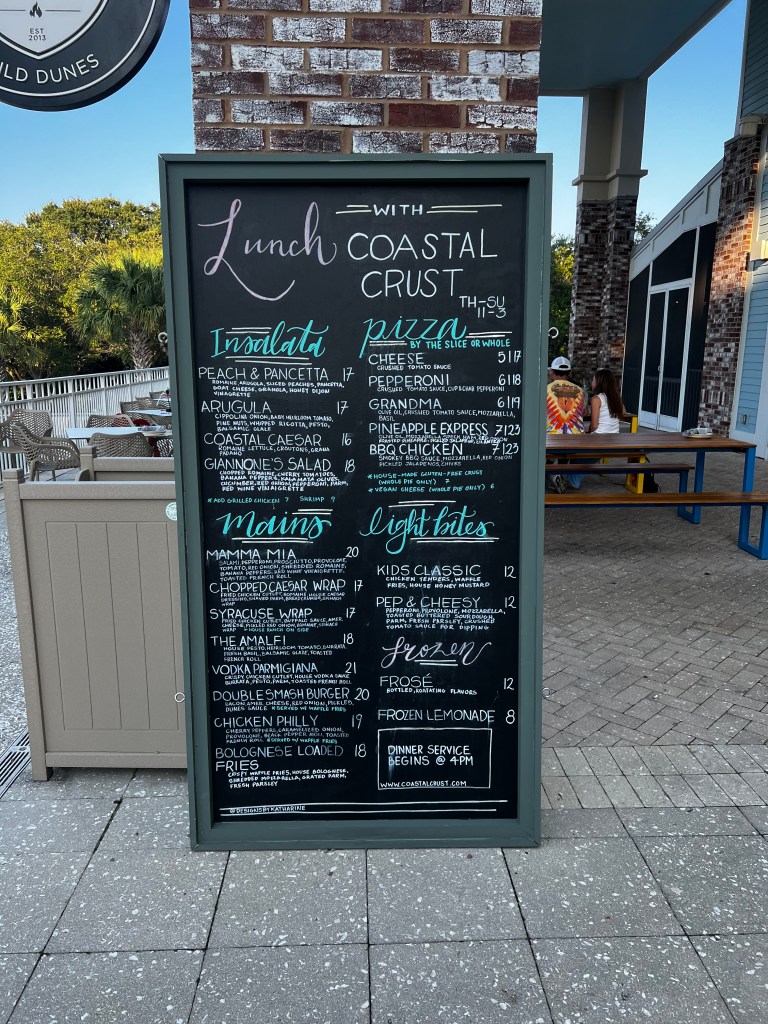 EST
2013
WILD DUNES
Lunch
WITH
COASTAL
CRUST
TH-SU
11-3
Insalata
PEACH & PANCETTA 17
ROMAINE, ARUGULA, SLICED PEACHES, PANCETTA,
GOAT CHEESE, GRANOLA, HONEY DIJON
VINAIGRETTE
ARUGULA 17
CIPPOLINA ONION, BABY HEIRLOOM TOMATO,
PINE NUTS, WHIPPED RICOTTA, PESTO,
BALSAMIC GLAZE
COASTAL CAESAR 16
ROMAINE LETTUCE, CROUTONS, GRANA
PADANO
GIANNONE'S SALAD 18
CHOPPED ROMAINE, CHERRY TOMATOES,
BANANA PEPPERS, KALAMATA OLIVES,
CUCUMBER, RED ONION, PEPPERONI, PARM,
RED WINE VINAIGRETTE
*ADD GRILLED CHICKEN 7 SHRIMP 9
Mains
MAMMA MIA 20
SALAMI, PEPPERONI, PROSCIUTTO, PROVOLONE,
TOMATO, RED ONION, SHREDDED ROMAINE,
BANANA PEPPERS, RED WINE VINAIGRETTE,
TOASTED FRENCH ROLL
CHOPPED CAESAR WRAP 17
FRIED CHICKEN CUTLET, ROMAINE, HOUSE CAESAR
DRESSING, SHAVED PARM, BREADCRUMBS, SPINACH
WRAP
SYRACUSE WRAP 17
FRIED CHICKEN CUTLET, BUFFALO SAUCE, AMER.
CHEESE, PICKLED RED ONION, ROMAINE, SPINACH
WRAP *HOUSE RANCH ON SIDE
THE AMALFI 18
HOUSE PESTO, HEIRLOOM TOMATO, BURRATA,
FRESH BASIL, BALSAMIC GLAZE, TOASTED
FRENCH ROLL
VODKA PARMIGIANA 21
CRISPY CHICKEN CUTLET, HOUSE VODKA SAUCE
BURRATA, PESTO, PARM, TOASTED FRENCH ROLL
DOUBLE SMASH BURGER 20
BACON, AMER. CHEESE, RED ONION, PICKLES,
DUNES SAUCE *SERVED W/ WAFFLE FRIES
CHICKEN PHILLY 19
CHERRY PEPPERS, CARAMELIZED ONION,
PROVOLONE, BLACK PEPPER MAYO, TOASTED
FRENCH ROLL *SERVED W/ WAFFLE FRIES
BOLOGNESE LOADED 18
FRIES
CRISPY WAFFLE FRIES, HOUSE BOLOGNESE,
SHREDDED MOZZARELLA, GRATED PARM,
FRESH PARSLEY
@DESIGNSBYKATHARINE
pizza
BY THE SLICE OR WHOLE
CHEESE 5|17
CRUSHED TOMATO SAUCE
PEPPERONI 6|18
CRUSHED TOMATO SAUCE, CUP&CHAR PEPPERONI
GRANDMA 6|19
OLIVE OIL, CRUSHED TOMATO SAUCE, MOZZARELLA,
BASIL
PINEAPPLE EXPRESS 7|23
OLIVE OIL, MOZZARELLA,
ROASTED PINEAPPLE, PICKLED JALAPENO,
BBQ CHICKEN 7|23
SMOKEY BBQ SAUCE, MOZZARELLA, RED ONION
PICKLED JALAPENOS, CHIVES
*HOUSE-MADE GLUTEN-FREE CRUST
(WHOLE PIE ONLY) 7
*VEGAN CHEESE (WHOLE PIE ONLY) 6
light bites
KIDS CLASSIC 12
CHICKEN TENDERS, WAFFLE
FRIES, HOUSE HONEY MUSTARD
PEP & CHEESY 12
PEPPERONI, PROVOLONE, MOZZARELLA,
TOASTED BUTTERED SOURDOUGH,
PARM, FRESH PARSLEY, CRUSHED
TOMATO SAUCE FOR DIPPING
frozen
FROSÉ 12
BOTTLED, ROATATING FLAVORS
FROZEN LEMONADE 8
DINNER SERVICE
BEGINS @ 4PM
WWW.COASTALCRUST.COM